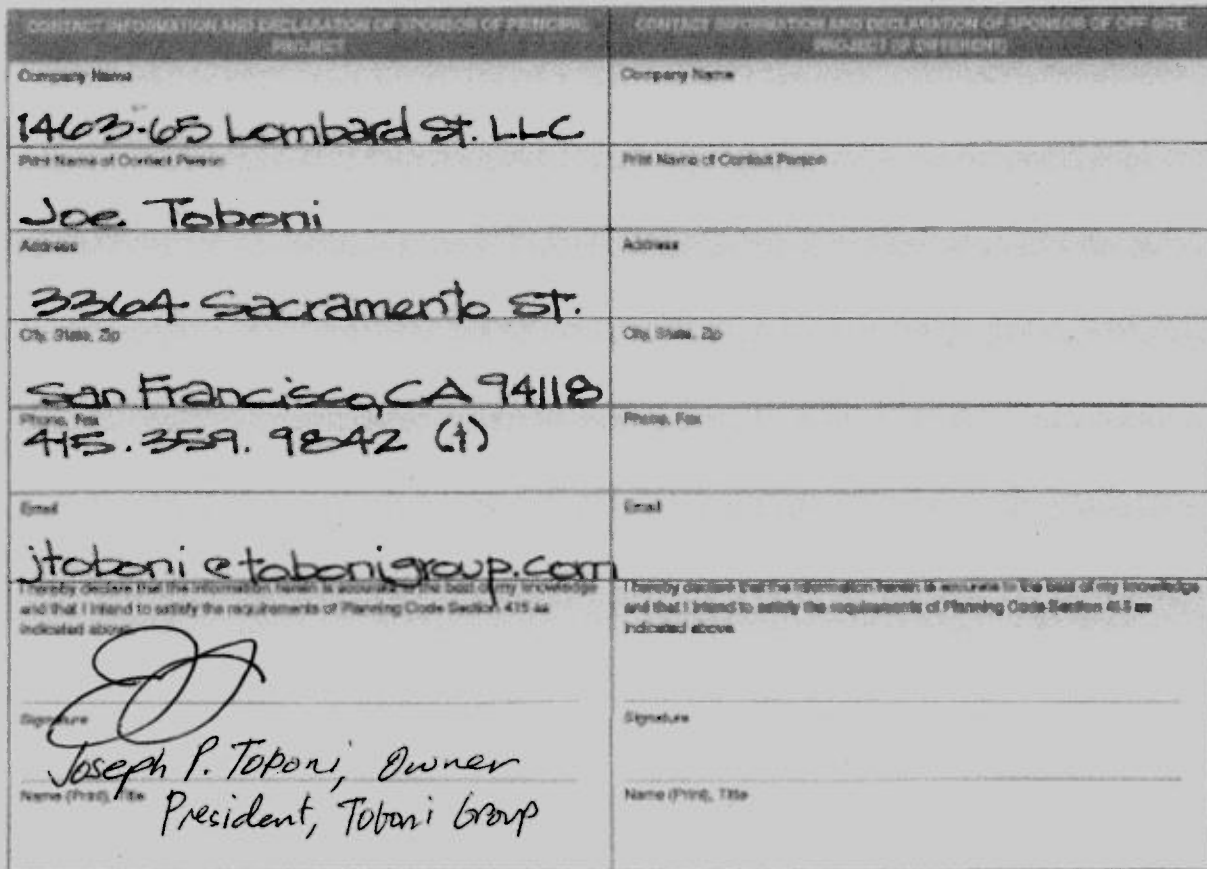 CONTACT INFORMATION AND DECLARATION OF SPONSOR OF PRINCIPAL
PROJECT
Company Name
1463-65 Lombard St. LLC
Print Name of Contact Person
Joe Toboni
Address
3364 Sacramento St.
City, State, Zip
San Francisco, CA 94118
Phone, Fax
415.359.9842 (t)
Email
jtoboni@tobonigroup.com
I hereby declare that the information herein is accurate to the best of my knowledge
and that I intend to satisfy the requirements of Planning Code Section 415 as
indicated above.
Signature
Joseph P. Toboni, Owner
Name (Print), Title
President, Toboni Group
CONTACT INFORMATION AND DECLARATION OF SPONSOR OF OFF-SITE
PROJECT (IF DIFFERENT)
Company Name
Print Name of Contact Person
Address
City, State, Zip
Phone, Fax
Email
I hereby declare that the information herein is accurate to the best of my knowledge
and that I intend to satisfy the requirements of Planning Code Section 415 as
indicated above.
Signature
Name (Print), Title